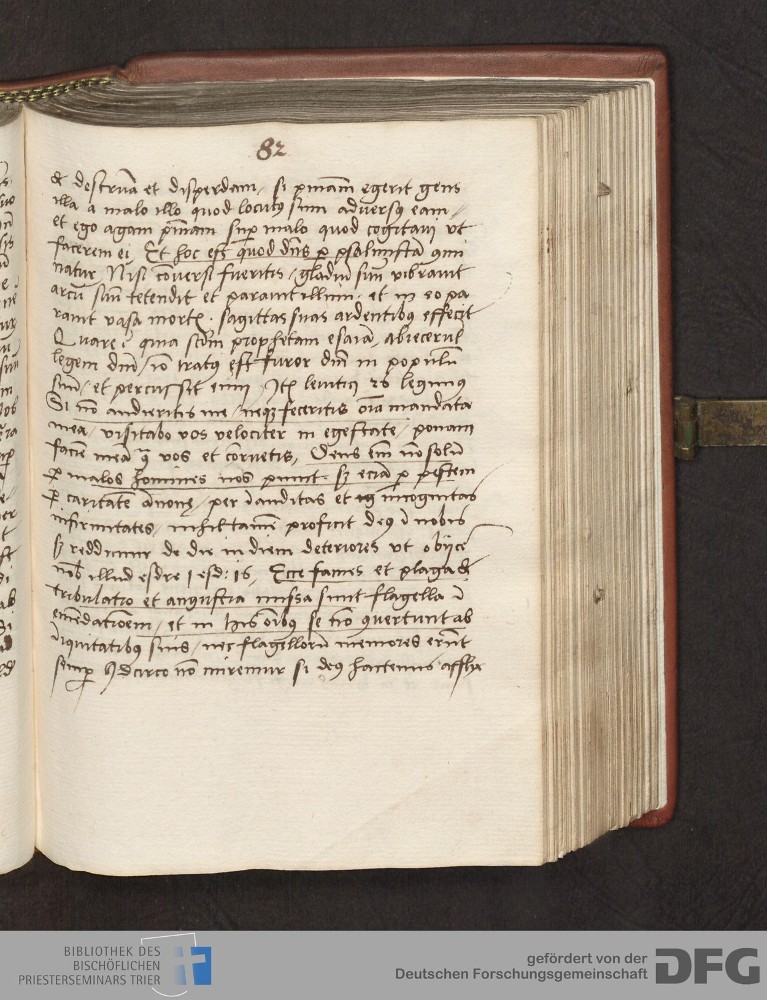 82
& destruā et disperdam, si pniam̄ egerit gens
illa a malo illo quod locutꝯ sum adversꝯ eam,
et ego agam pniam̄ sup malo quod cogitavi ut
facerem ei. Et hoc est quod dn̄s p psalmistā
natur Nisi cōversi fueritis, gladiū suū vibravit
arcū suū tetendit et paravit illum, et in eo pa
ravit vasa mortꝭ. sagittas suas ardentibꝯ effecit
Quare, quia scdm̄ prophetam esaiā, abiecerūt
legem dn̄i, iō iratꝯ est furor dn̄i in populū
suū, et percussit eum Itē levitici 26 legimus
Si nō audieritis me, neqꝫ feceritis oīa mandata
mea, visitabo vos velociter in egestate, ponam
faciē meā ꝯ vos et corruetis, Deus em̄ nō solū
ꝑ malos homines nos punit, sꝫ eciā ꝑ pestem
ꝑ caritatē annonę, per īauditas et incognitas
infirmitates, nihil tamē proficit deꝯ ī nobis
sꝫ reddimur de die in diem deteriores ut obijce
nob illud esdre 1 esd: 16, Ecce fames et plaga &
tribulatio et angustia missa sunt flagella ī
emēdatioem, et in his oībꝯ se nō ꝯvertunt ab
īiquitatibꝯ suis, nec flagellorū memores erūt
semꝑ Idcirco nō miremur si deꝯ hactenus afflix
BIBLIOTHEK DES
BISCHÖFLICHEN
PRIESTERSEMINARS TRIER
gefördert von der
Deutschen Forschungsgemeinschaft
DFG